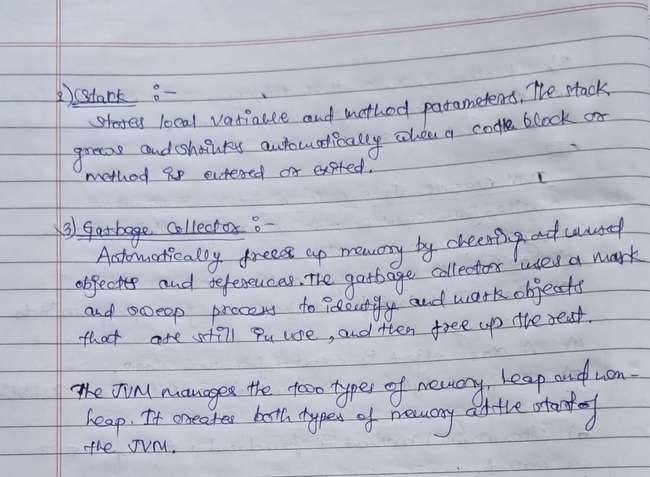 2) Stack :-
Stores local variable and method parameters. The stack
grows and shrinks automatically when a code block or
method is entered or exited.
3) Garbage Collector :-
Automatically frees up memory by cleering out unused
objects and references. The garbage collector uses a mark
and sweep process to identify and mark objects
that are still in use, and then free up the rest.
The JVM manages the two types of memory, heap and non-
heap. It creates both types of memory at the start of
the JVM.